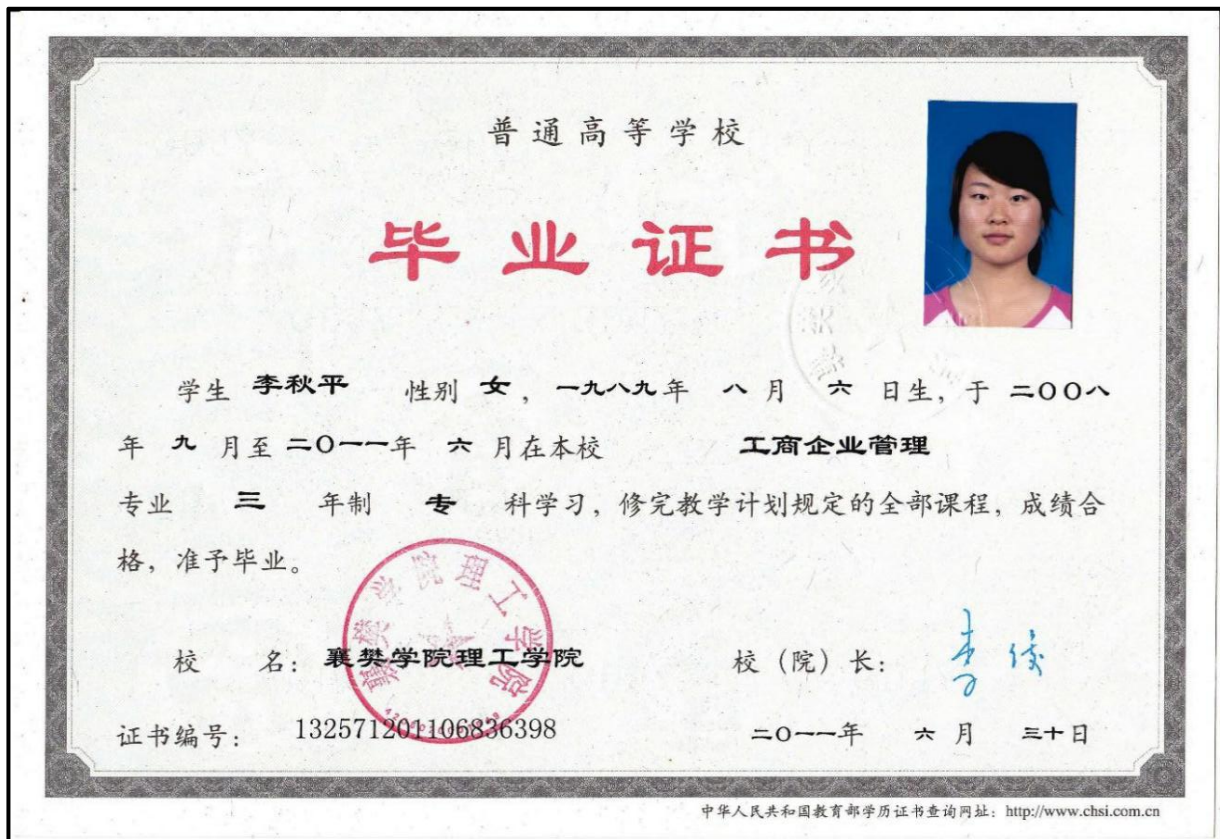 普通高等学校
毕业证书
学生 李秋平 性别 女，一九八九年 八 月 六 日生，于 二〇〇八
年 九 月至 二〇一一年 六 月在本校 工商企业管理
专业 三 年制 专 科学习，修完教学计划规定的全部课程，成绩合
格，准予毕业。
襄樊学院理工学院
校 名：襄樊学院理工学院 校（院）长：
证书编号： 132571201106836398 二〇一一年 六 月 三十日
中华人民共和国教育部学历证书查询网址：http://www.chsi.com.cn